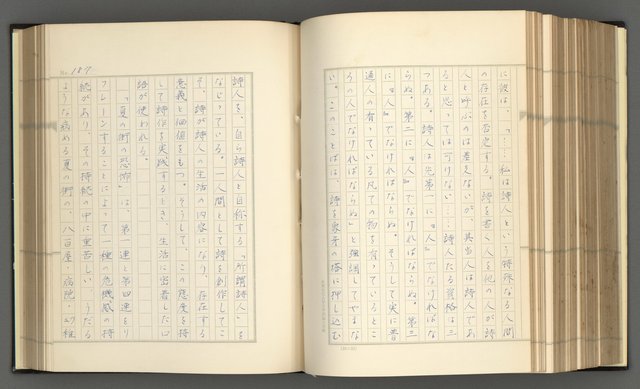 に彼は、「……私は詩人という特殊なる人間
の存在を否定する。詩を書く人を他の人が詩
人と呼ぶのは差支ないが、其当人は詩人であ
ると思っては可けない……詩人たる資格は三
つある。詩人は先第一に『人』でなければな
らぬ。第二に『人』でなければならぬ。第三
に『人』でなければならぬ。そうして実に普
通人の有っている凡ての物を有っているとこ
ろの人でなければならぬ」と強調してやまな
い。このことばは、詩を象牙の塔に押し込む
No. 187
詩人を、自ら詩人と自称する「所謂詩人」を
なじっている。一人間として詩を創作してこ
そ、詩が詩人の生活の内容になり、存在する
意義と価値をもつ。そうして、この態度を持
して詩作を実践するとき、生活に密着した口
語が使われる。
「夏の街の恐怖」は、第一連と第四連をリ
フレーンすることによって一種の危機感の持
続があり、その持続の中に重苦しい……うだる
ような病める夏の街の……八百屋・病院・幼稚